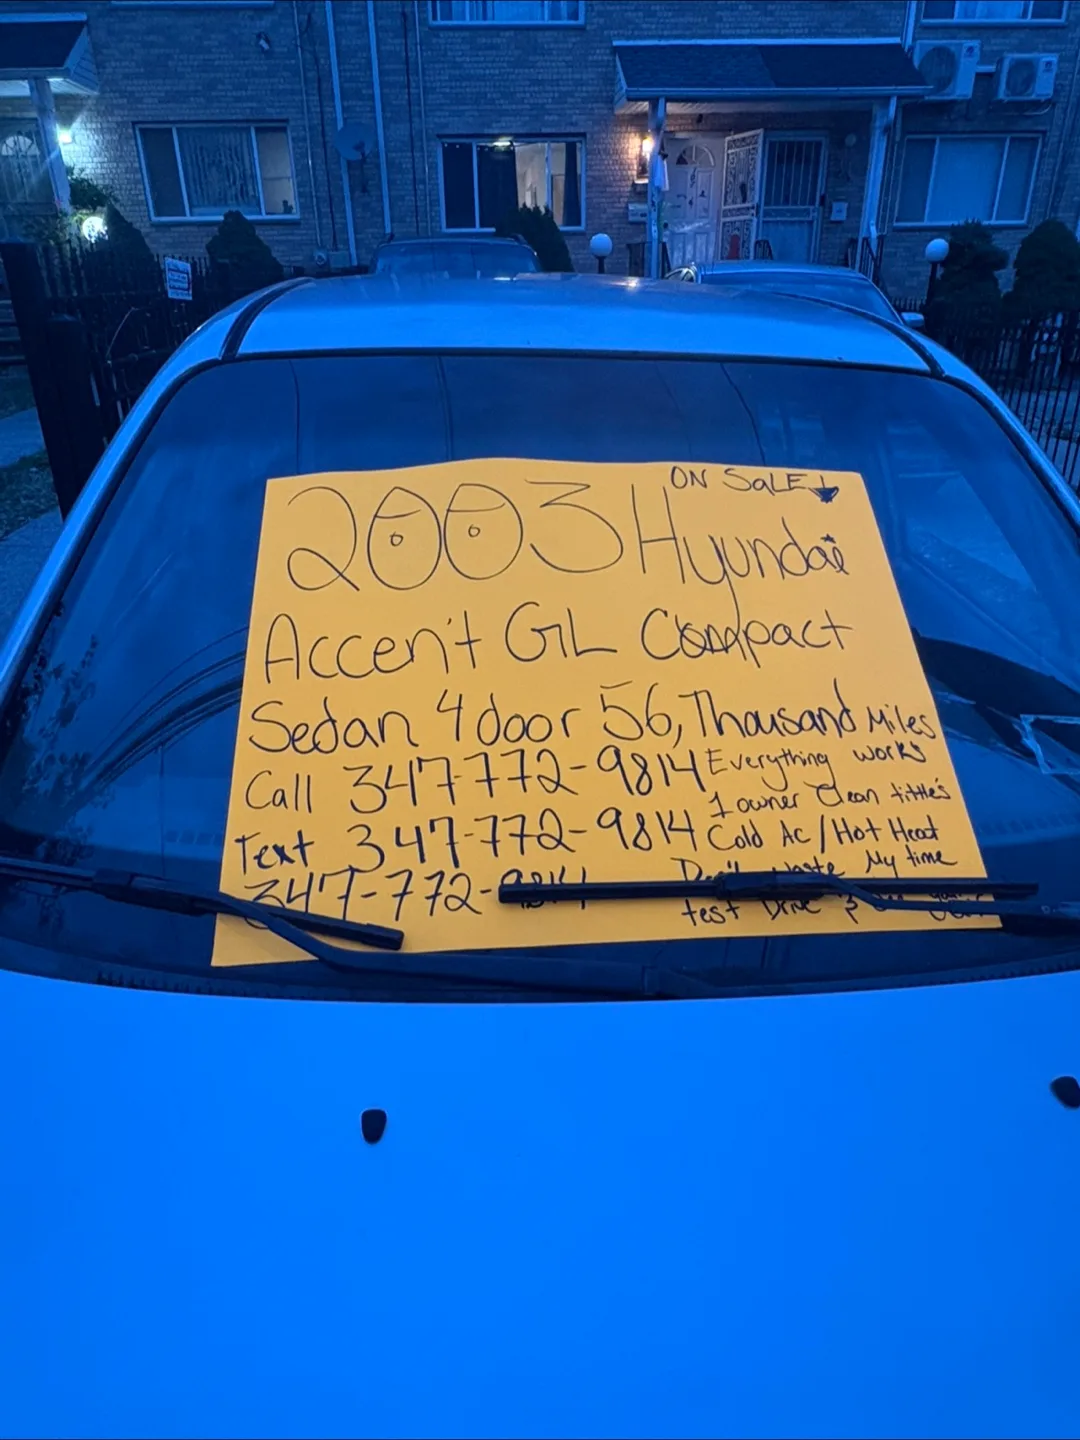 ON SaLE
2003 Hyundai
Accent GL Compact
Sedan 4 door 56, Thousand Miles
Call 347-772-9814 Everything works
1 owner Clean tittle's
Text 347-772-9814 Cold Ac / Hot Heat
Don't waste My time
347-772-9814
test Drive &